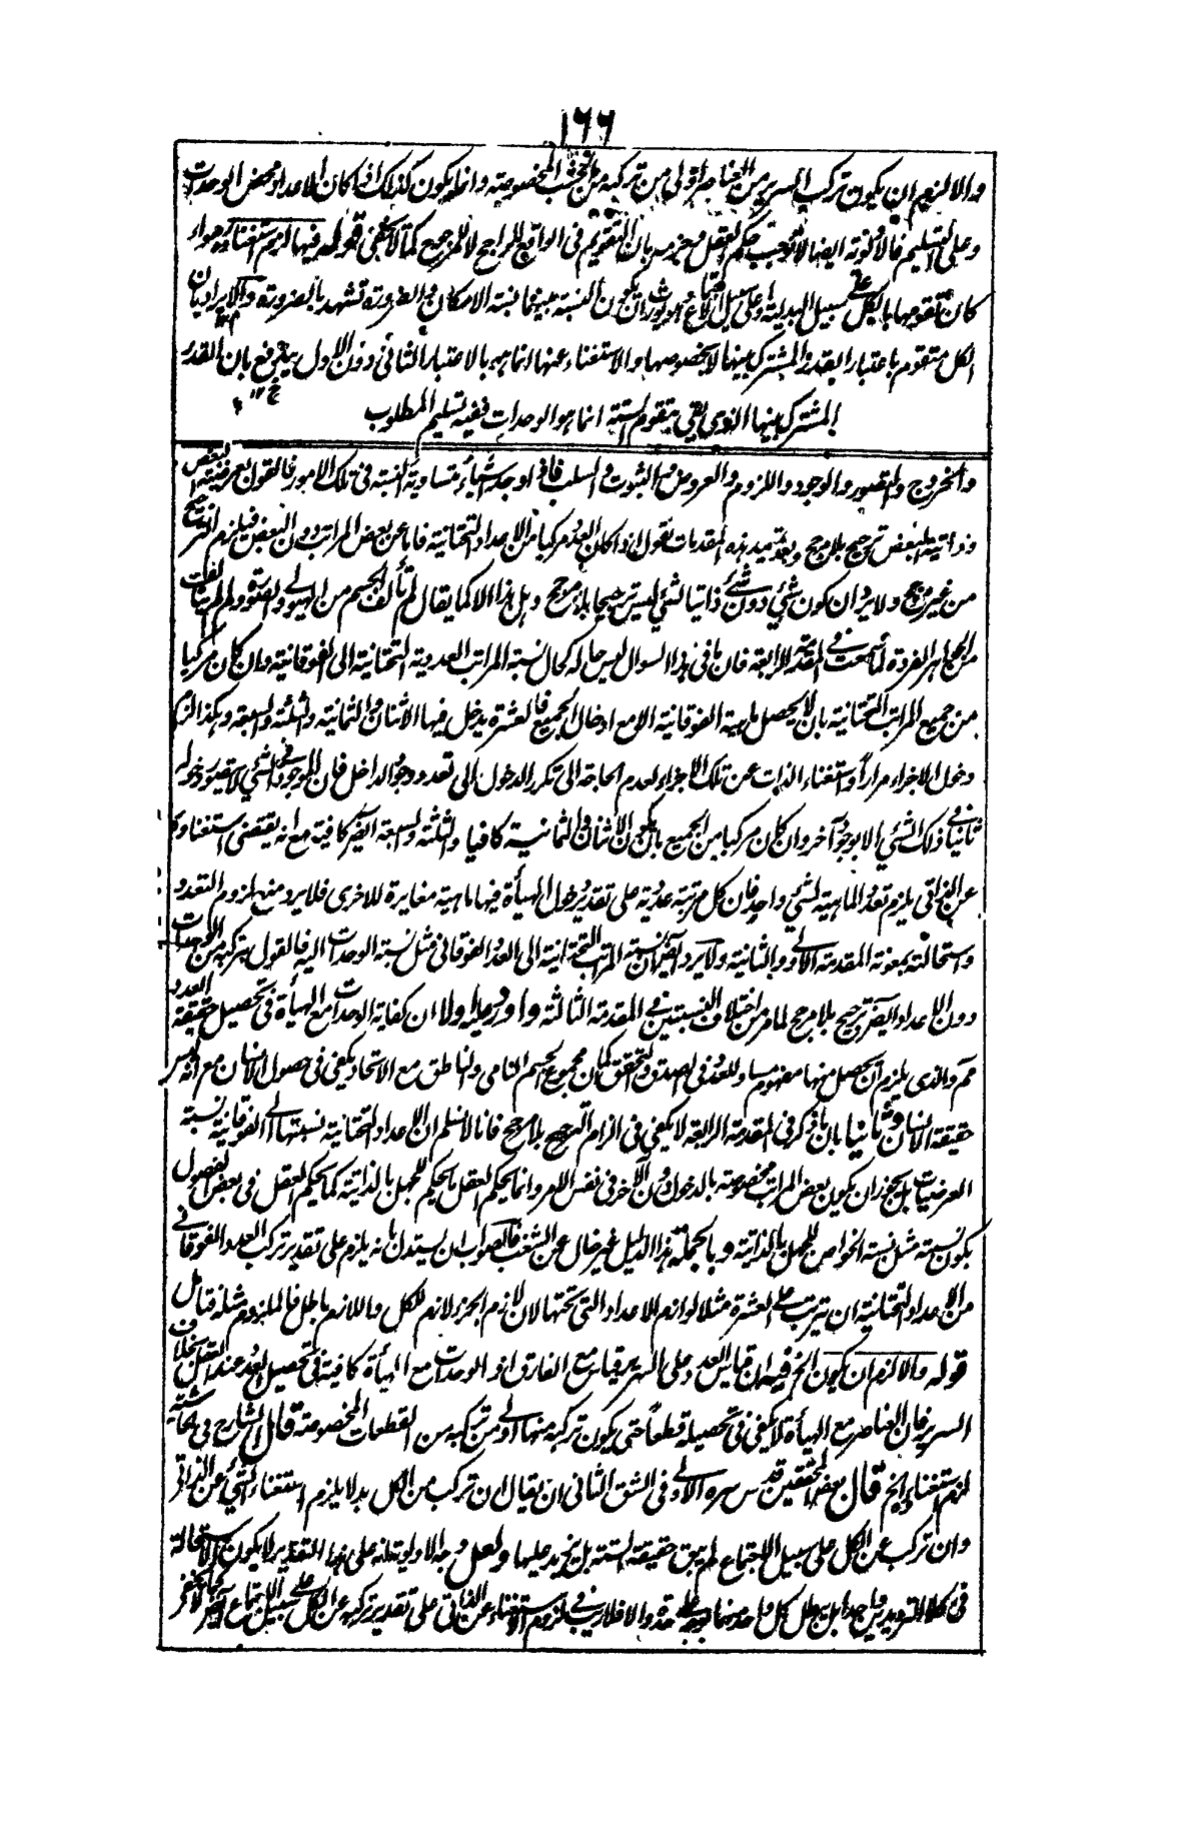 ١٦٦
والا لزم ان يكون تركب السرير من العناصر اولى من تركبه من الخشب المخصوصة وانما يكون كذلك اذا كان الاعداد محض الوحدات
وعلى التسليم فالاولوية ايضا لا توجب حكم العقل وجزمه بان التقويم فى الواقع للراجح لا للمرجوح كما لا يخفى قوله فيها لزم استغناءه سواء
كان تقومها بالكل على سبيل البدلية او على سبيل الاجتماع النسبة بينهما نسبة الامكان والضرورة تشهد بالضرورة والايراد بان
الكل متقوم باعتبار القدر المشترك بينها لا بخصوصها والاستغناء عنها انما هو بالاعتبار الثانى دون الاول يندفع بان القدر
المشترك بينها الذى يتقوم الستة انما هو الوحدات ففيه تسليم المطلوب
والخروج والتصور والوجود واللزوم والعروض والثبوت والسلب فاذا وجد اشياء متساوية النسبة فى تلك الامور فالقول بعرضية البعض
وذاتية البعض ترجيح بلا مرجح وبعد تمهيد هذه المقدمات نقول اذا كان العدد مركبا من الاعداد التحتانية فاما عن بعض المراتب دون البعض فيلزم الترجيح
من غير مرجح ولا يرد ان كون شئ دون شئ ذاتيا لشئ ليس ترجيحا بلا مرجح وهل هذا الا كما يقال لم تألف الجسم من الهيولى والصورة ولم لم يتألف
من الجواهر الفردة لما سمعت فى المقدمة الرابعة فان ما فى هذا السوال ليس حاله كحال نسبة المراتب العددية التحتانية الى الفوقانية وان كان مركبا
من جميع المراتب التحتانية بان لا يحصل ماهية الفوقانية الا مع ادخال الجميع فالعشرة يدخل فيها الاثنان والثمانية والثلثة والسبعة وهكذا لزم
دخول الاجزاء مرارا واستغناء الذات عن تلك الاجزاء لعدم الحاجة الى تكرر الدخول الى تعدد وجود الداخل فان الموجود فى الشئ لا يتصور دخوله
ثانيا فى ذلك الشئ الا بوجود آخر وان كان مركبا من الجميع بان يكون الاثنان والثمانية كافيا والثلثة والسبعة ايضا كافية مع انه يقتضى استغناءه
عن الذاتى يلزم تعدد الماهية لشئ واحد فان كل مرتبة عددية على تقدير دخول الهيأة فيها ماهية مغايرة للاخرى فلا يرد منع لزوم التعدد
واستحالته بمعونة المقدمة الاولى والثانية ولا يرد ايضا ان نسبة المراتب التحتانية الى العدد الفوقانى مثل نسبة الوحدات اليه فالقول بتركبه من الوحدات
دون الاعداد ايضا ترجيح بلا مرجح لما مر من اختلاف النسبتين فى المقدمة الثالثة واورد عليه اولا ان كفاية الوحدات مع الهيأة فى تحصيل حقيقة العدد
مم والذى يلزم ان يحصل منها مفهوم مساو للعدد فى الصدق والتحقق كما ان مجموع الجسم النامى والناطق مع الاتحاد يكفى فى حصول الانسان مع انه ليس
حقيقة الانسان وثانيا بان ما ذكر فى المقدمة الرابعة لا يكفى فى الزام الترجيح بلا مرجح فانا لا نسلم ان الاعداد التحتانية نسبتها الى الفوقانية نسبة
العرضيات بل يجوز ان يكون بعض المراتب مخصوصة بالدخول دون الآخر فى نفس الامر وانما يحكم العقل ما يحكم للجهل بالذاتية كما يحكم العقل فى بعض الفصول
بكون نسبته مثل نسبة الخواص للجهل بالذاتية وبالجملة هذا الدليل غير خال عن الشغب فالصواب ان يستدل بانه يلزم على تقدير تركب العدد الفوقانى
من الاعداد التحتانية ان يترتب على العشرة مثلا لوازم الاعداد التى تحتها لان لازم الجزء لازم للكل واللازم باطل فالملزوم مثله فتأمل
قوله والا لزم ان يكون الخ فيه ان قياس العدد على السرير قياس مع الفارق اذ الوحدات مع الهيأة كافية فى تحصيل العدد عند العقل بخلاف
السرير فان العناصر مع الهيأة لا يكفى فى تحصيله قطعا حتى يكون تركبه منها اولى من تركبه من القطعات المخصوصة قال الشارح فى الحاشية
لزم استغناءه الخ قال بعض المحققين قدس سره الاولى فى الشق الثانى ان يقال ان تركب من الكل بدلا يلزم استغناء الشئ عن الذاتى
وان تركب عن الكل على سبيل الاجتماع لم يبق حقيقة الستة بل يزيد عليها ولعل وجه الاولوية انه على هذا التقدير لا يكون الاستحالة
فى كلا الترديدين واحدا بل على كل واحد منهما على حدة والا فلا ريب فى لزوم الاستغناء عن الذاتى على تقدير تركبه عن الكل على سبيل الاجتماع ايضا كما لا يخفى